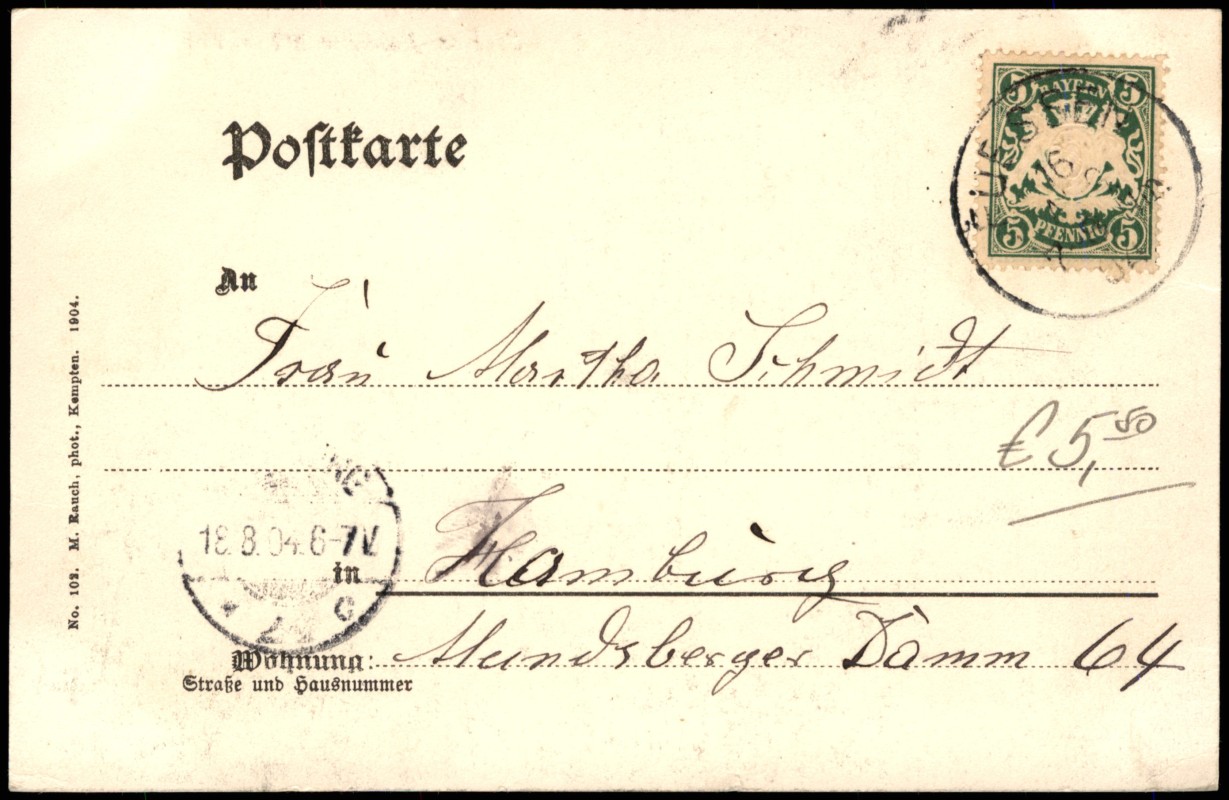 Postkarte
5 BAYERN 5
5 PFENNIG 5
FUESSEN
16
An
Frau Martha Schmidt
€ 5,80
18.8.04.6-7V
in
Hamburg
Wohnung: Mundsberger Damm 64
Straße und Hausnummer
No. 102. M. Rauch, phot., Kempten. 1904.